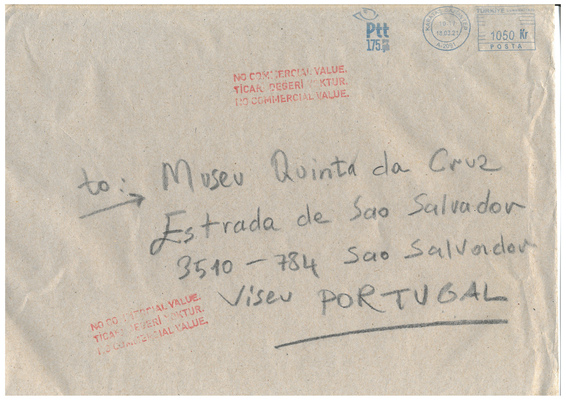 Ptt
175
1050 Kr.
POSTA
NO COMMERCIAL VALUE.
TİCARİ DEĞERİ YOKTUR.
NO COMMERCIAL VALUE.
to: Museu Quinta da Cruz
Estrada de Sao Salvador
3510-784 Sao Salvador
Viseu PORTUGAL
NO COMMERCIAL VALUE.
TİCARİ DEĞERİ YOKTUR.
NO COMMERCIAL VALUE.